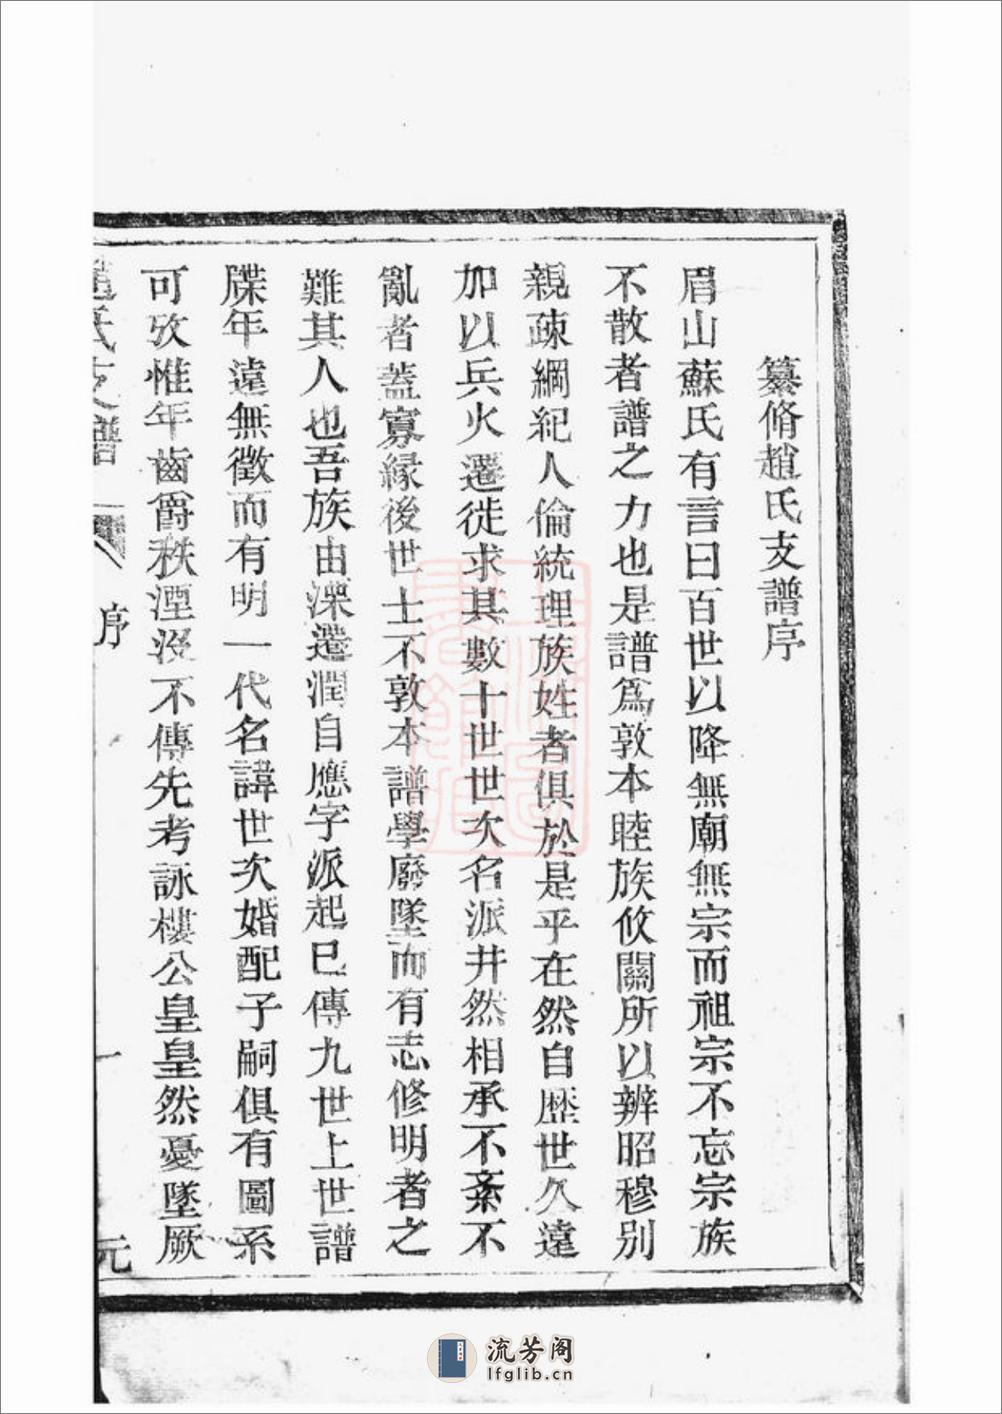 纂脩趙氏支譜序
眉山蘇氏有言曰百世以降無廟無宗而祖宗不忘宗族
不散者譜之力也是譜爲敦本睦族攸關所以辨昭穆別
親疎綱紀人倫統理族姓者俱於是乎在然自歷世久遠
加以兵火遷徙求其數十世世次名派井然相承不紊不
亂者蓋寡緣後世士不敦本譜學廢墜而有志修明者之
難其人也吾族由溧遷潤自應字派起巳傳九世上世譜
牒年遠無徵而有明一代名諱世次婚配子嗣俱有圖系
可攷惟年齒爵秩湮沒不傳先考詠樓公皇皇然憂墜厥
趙氏支譜
序
一
元
流芳阁
lfglib.cn